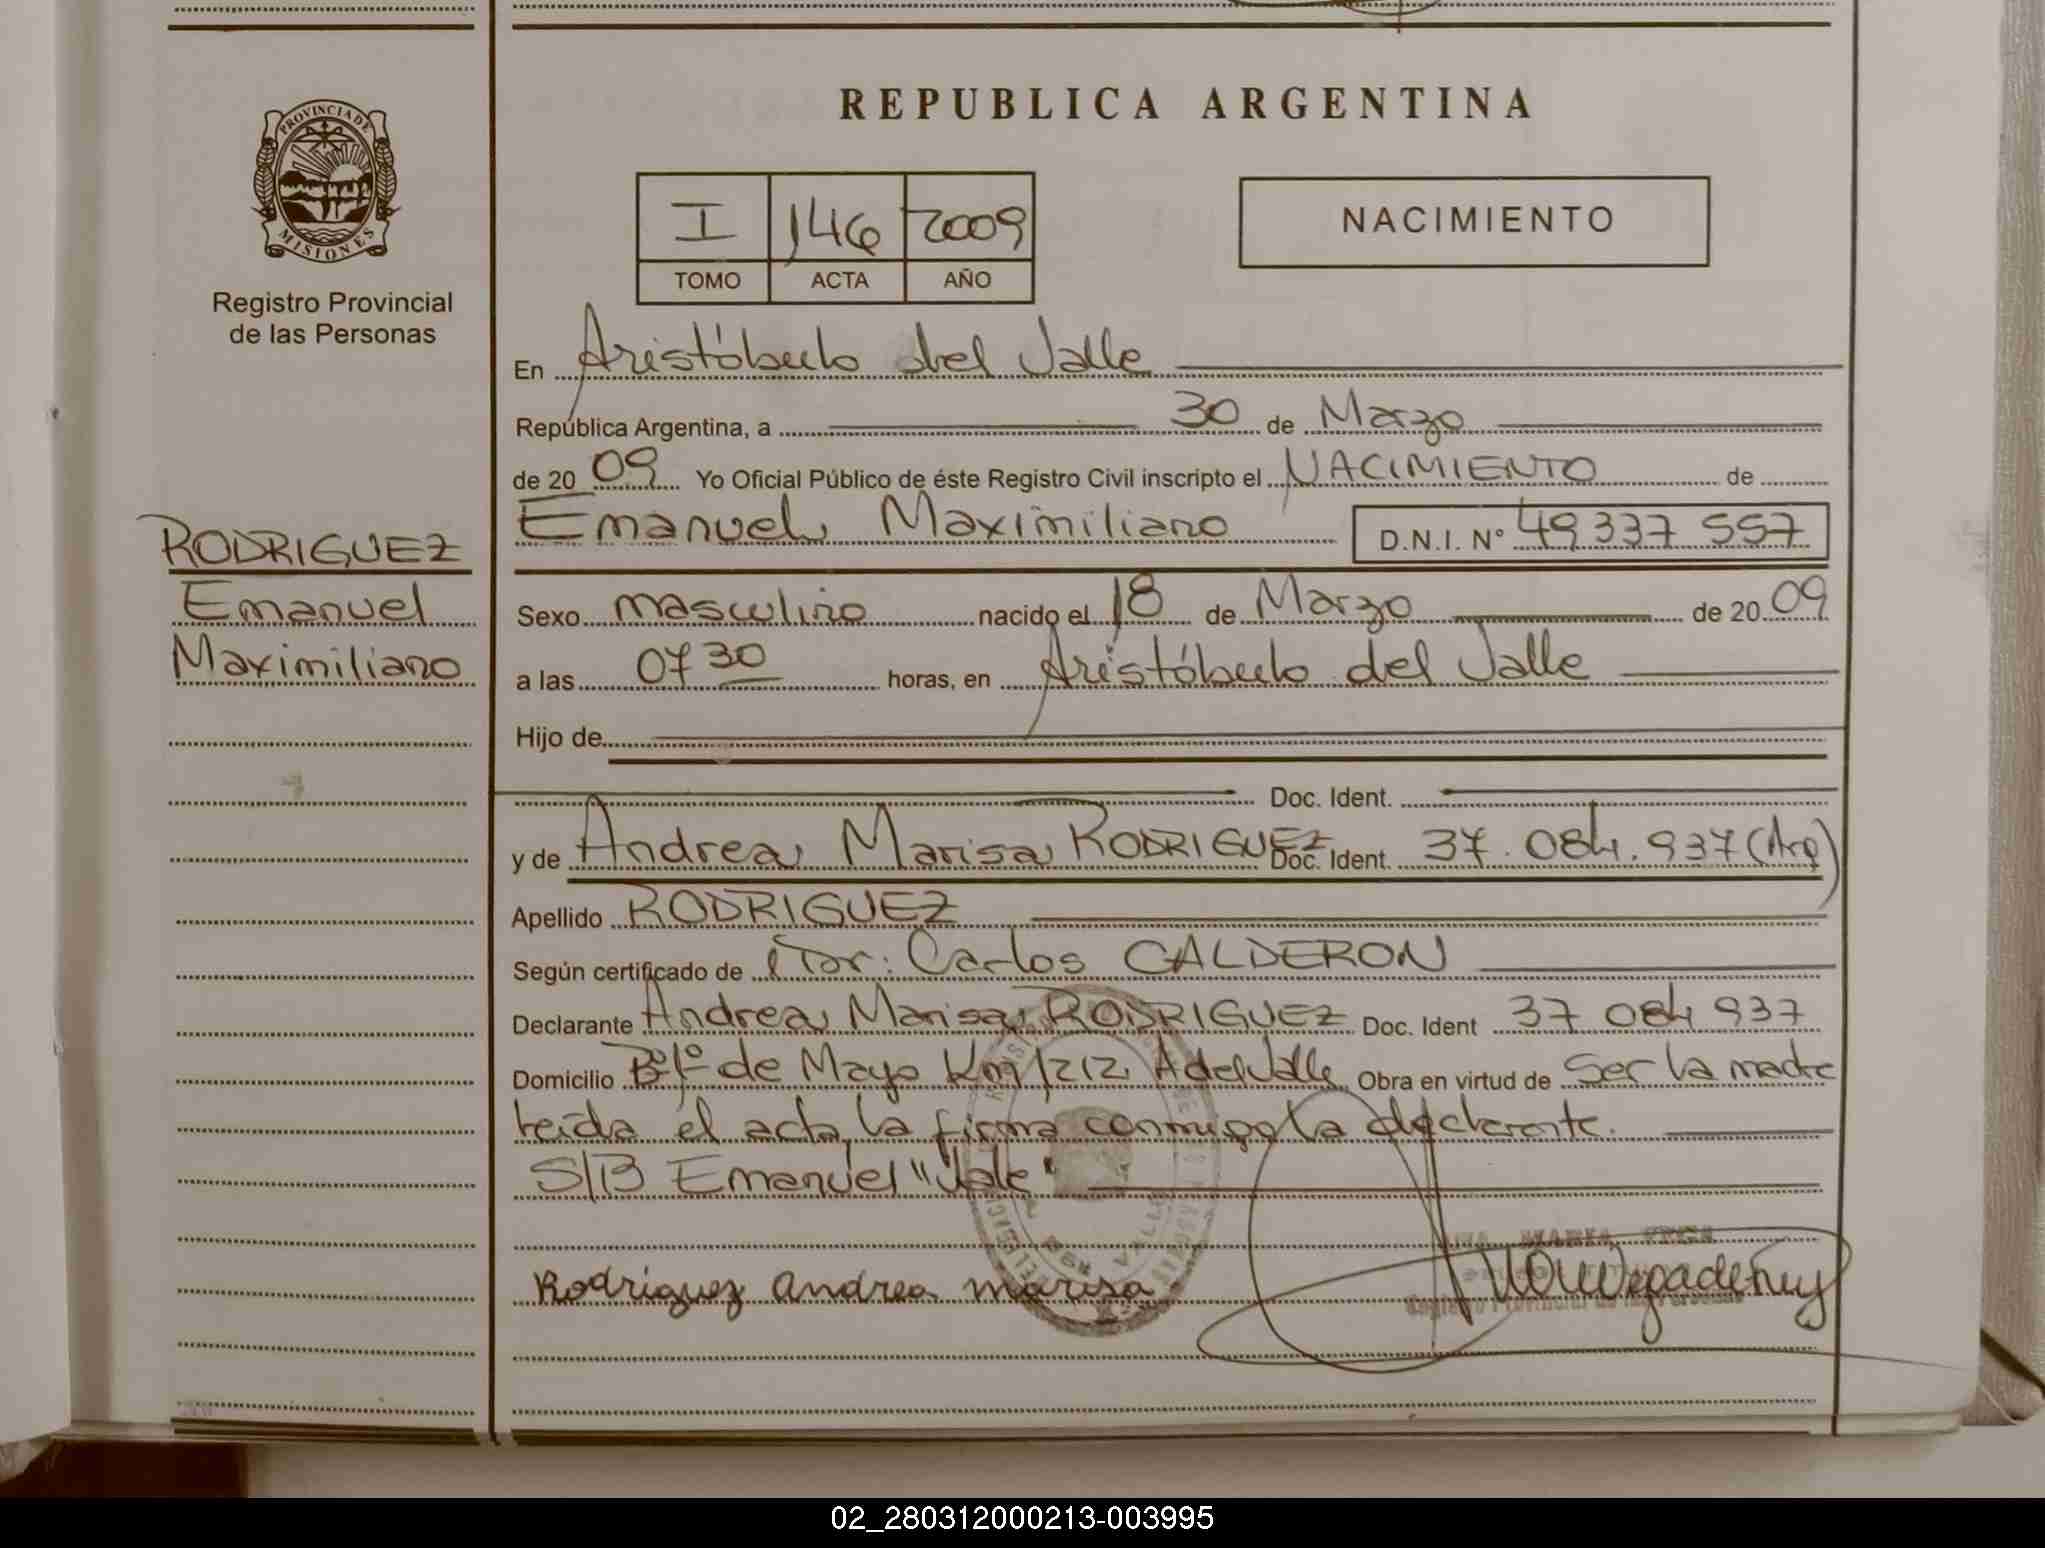 PROVINCIA DE
MISIONES
Registro Provincial
de las Personas
REPUBLICA ARGENTINA
I 146 2009
TOMO ACTA AÑO
NACIMIENTO
En Aristóbulo del Valle
República Argentina, a 30 de Marzo
de 20 09 Yo Oficial Público de éste Registro Civil inscripto el NACIMIENTO de
Emanuel Maximiliano D.N.I. N° 49 337 557
RODRIGUEZ
Emanuel
Maximiliano
Sexo masculino nacido el 18 de Marzo de 20 09
a las 07 30 horas, en Aristóbulo del Valle
Hijo de
Doc. Ident.
y de Andrea Marisa RODRIGUEZ Doc. Ident. 37.084.937 (Arg)
Apellido RODRIGUEZ
Según certificado de Dr: Carlos CALDERON
Declarante Andrea Marisa RODRIGUEZ Doc. Ident 37 084 937
Domicilio B° 1° de Mayo Km 1212 A del Valle Obra en virtud de Ser la madre
leída el acta, la firma conmigo la declarante.
S/B Emanuel "Vale"
Rodriguez Andrea marisa
02_280312000213-003995